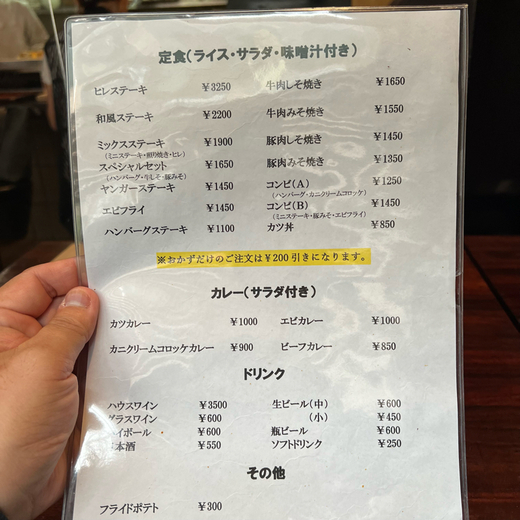 定食(ライス・サラダ・味噌汁付き)
ヒレステーキ ￥3250 牛肉しそ焼き ￥1650
和風ステーキ ￥2200 牛肉みそ焼き ￥1550
ミックスステーキ ￥1900 豚肉しそ焼き ￥1450
(ミニステーキ・照り焼き・ヒレ)
スペシャルセット ￥1650 豚肉みそ焼き ￥1350
(ハンバーグ・牛しそ・豚みそ)
ヤンガーステーキ ￥1450 コンビ(A) ￥1250
(ハンバーグ・カニクリームコロッケ)
エビフライ ￥1450 コンビ(B) ￥1450
(ミニステーキ・豚みそ・エビフライ)
ハンバーグステーキ ￥1100 カツ丼 ￥850
※おかずだけのご注文は￥200引きになります。
カレー(サラダ付き)
カツカレー ￥1000 エビカレー ￥1000
カニクリームコロッケカレー ￥900 ビーフカレー ￥850
ドリンク
ハウスワイン ￥3500 生ビール(中) ￥600
グラスワイン ￥600 (小) ￥450
イボール ￥600 瓶ビール ￥600
本酒 ￥550 ソフトドリンク ￥250
その他
フライドポテト ￥300